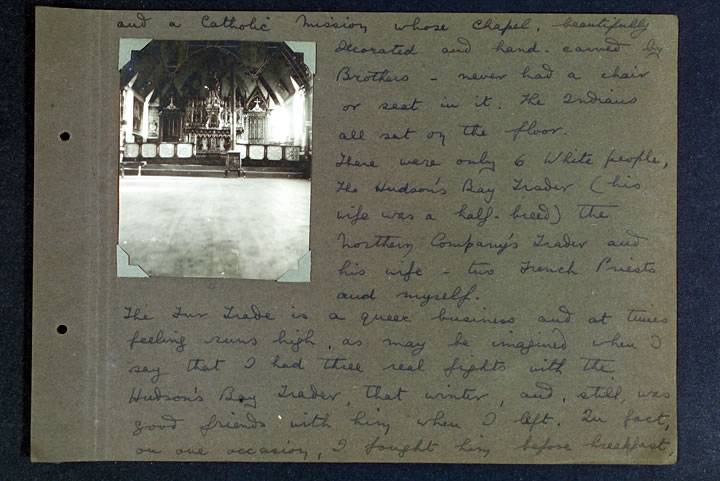 and a Catholic Mission whose chapel, beautifully
decorated and hand-carved by
Brothers - never had a chair
or seat in it. The Indians
all sat on the floor.
There were only 6 White people,
The Hudson's Bay Trader (his
wife was a half-breed) the
Northern Company's Trader and
his wife - two French Priests
and myself.
The Fur Trade is a queer business and at times
feeling runs high, as may be imagined when I
say that I had three real fights with the
Hudson's Bay Trader, that winter, and, still, was
good friends with him when I left. In fact,
on one occasion, I fought him before breakfast